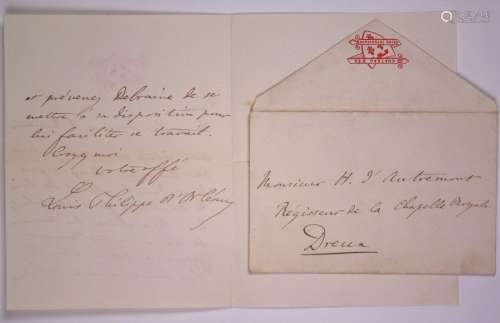 et prévenez Debraine de se
mettre à sa disposition pour
lui faciliter ce travail.
Croyez moi
votre affé
Louis Philippe d'Orléans
Monsieur H. d'Autremont
Régisseur de la Chapelle Royale
Dreux